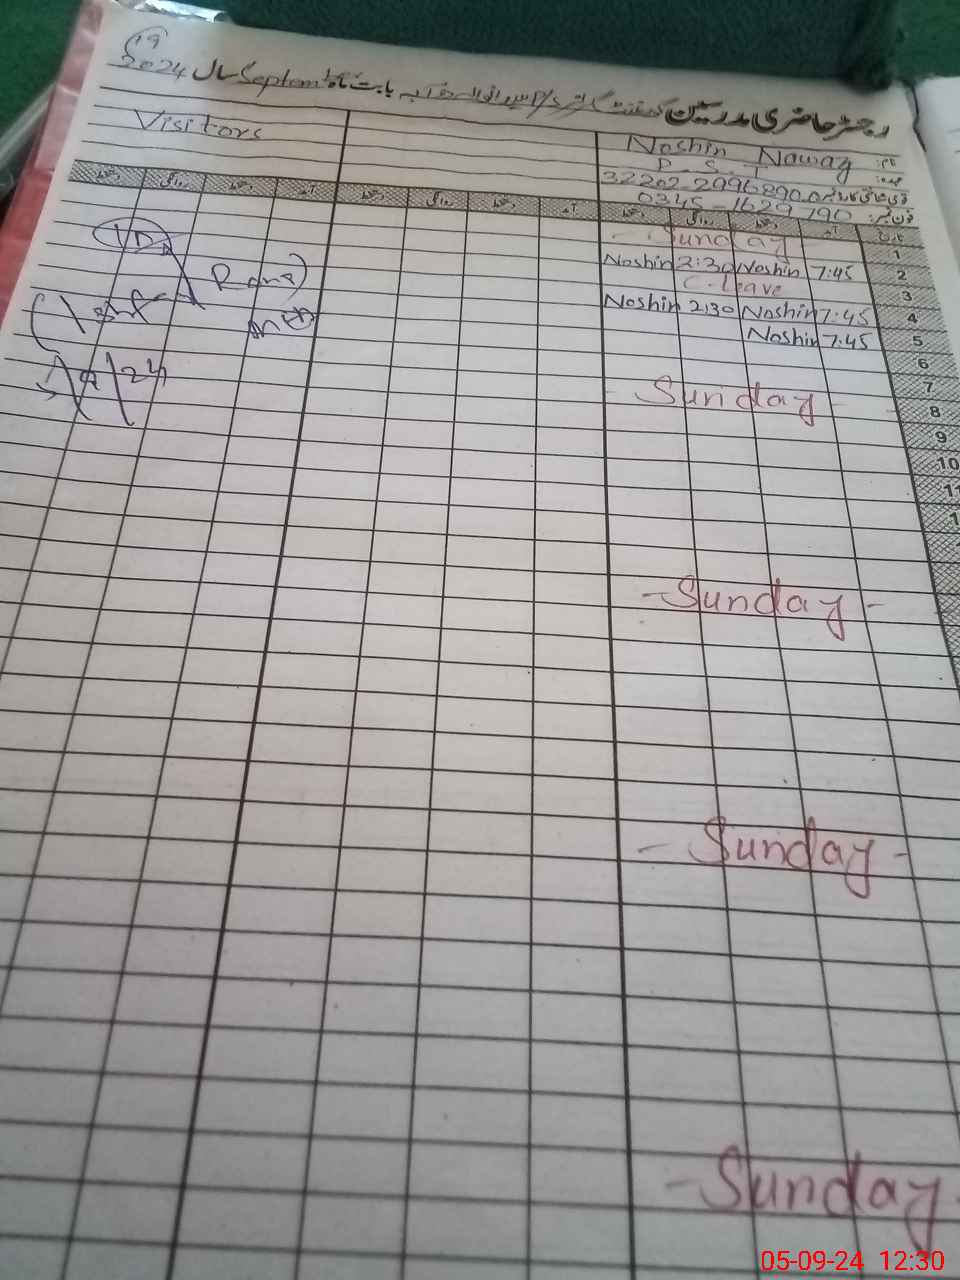 19
رجسٹر حاضری مدرسین گورنمنٹ گرلز P/S بابت ماہ Septem سال 2024
Visitors
نام: Noshin Nawaz
عہدہ: P.S.T
قومی شناختی کارڈ نمبر 32202-2996890-0
فون نمبر: 0345-1629790
تاریخ آمد دستخط روانگی دستخط آمد دستخط روانگی دستخط آمد دستخط روانگی دستخط
1 - Sunday -
2 7:45 Noshin 2:30 Noshin
3 C-leave
4 7:45 Noshin 2:30 Noshin
5 7:45 Noshin
6
7
8 - Sunday -
9
10
11
1
- Sunday -
- Sunday -
- Sunday -
05-09-24 12:30